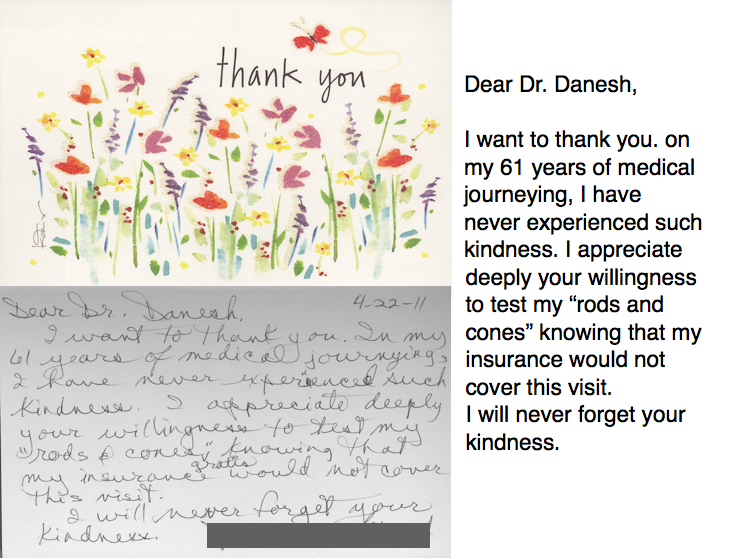 thank you
Dear Dr. Danesh,
4-22-11
I want to thank you. In my
61 years of medical journying,
I have never experienced such
kindness. I appreciate deeply
your willingness to test my
"rods & cones" knowing that
gratis
my insurance would not cover
this visit.
I will never forget your
kindness.
Dear Dr. Danesh,
I want to thank you. on
my 61 years of medical
journeying, I have
never experienced such
kindness. I appreciate
deeply your willingness
to test my “rods and
cones” knowing that my
insurance would not
cover this visit.
I will never forget your
kindness.